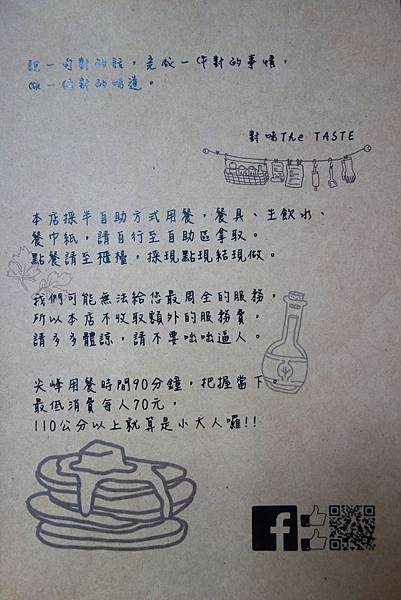 說一句對的話，完成一件對的事情，
做一份對的味道。
對味The TASTE
本店採半自助方式用餐，餐具、生飲水、
餐巾紙，請自行至自助區拿取。
點餐請至櫃檯，採現點現結現做。
我們可能無法給您最周全的服務，
所以本店不收取額外的服務費，
請多多體諒，請不要咄咄逼人。
尖峰用餐時間90分鐘，把握當下。
最低消費每人70元，
110公分以上就算是小大人囉!!
f